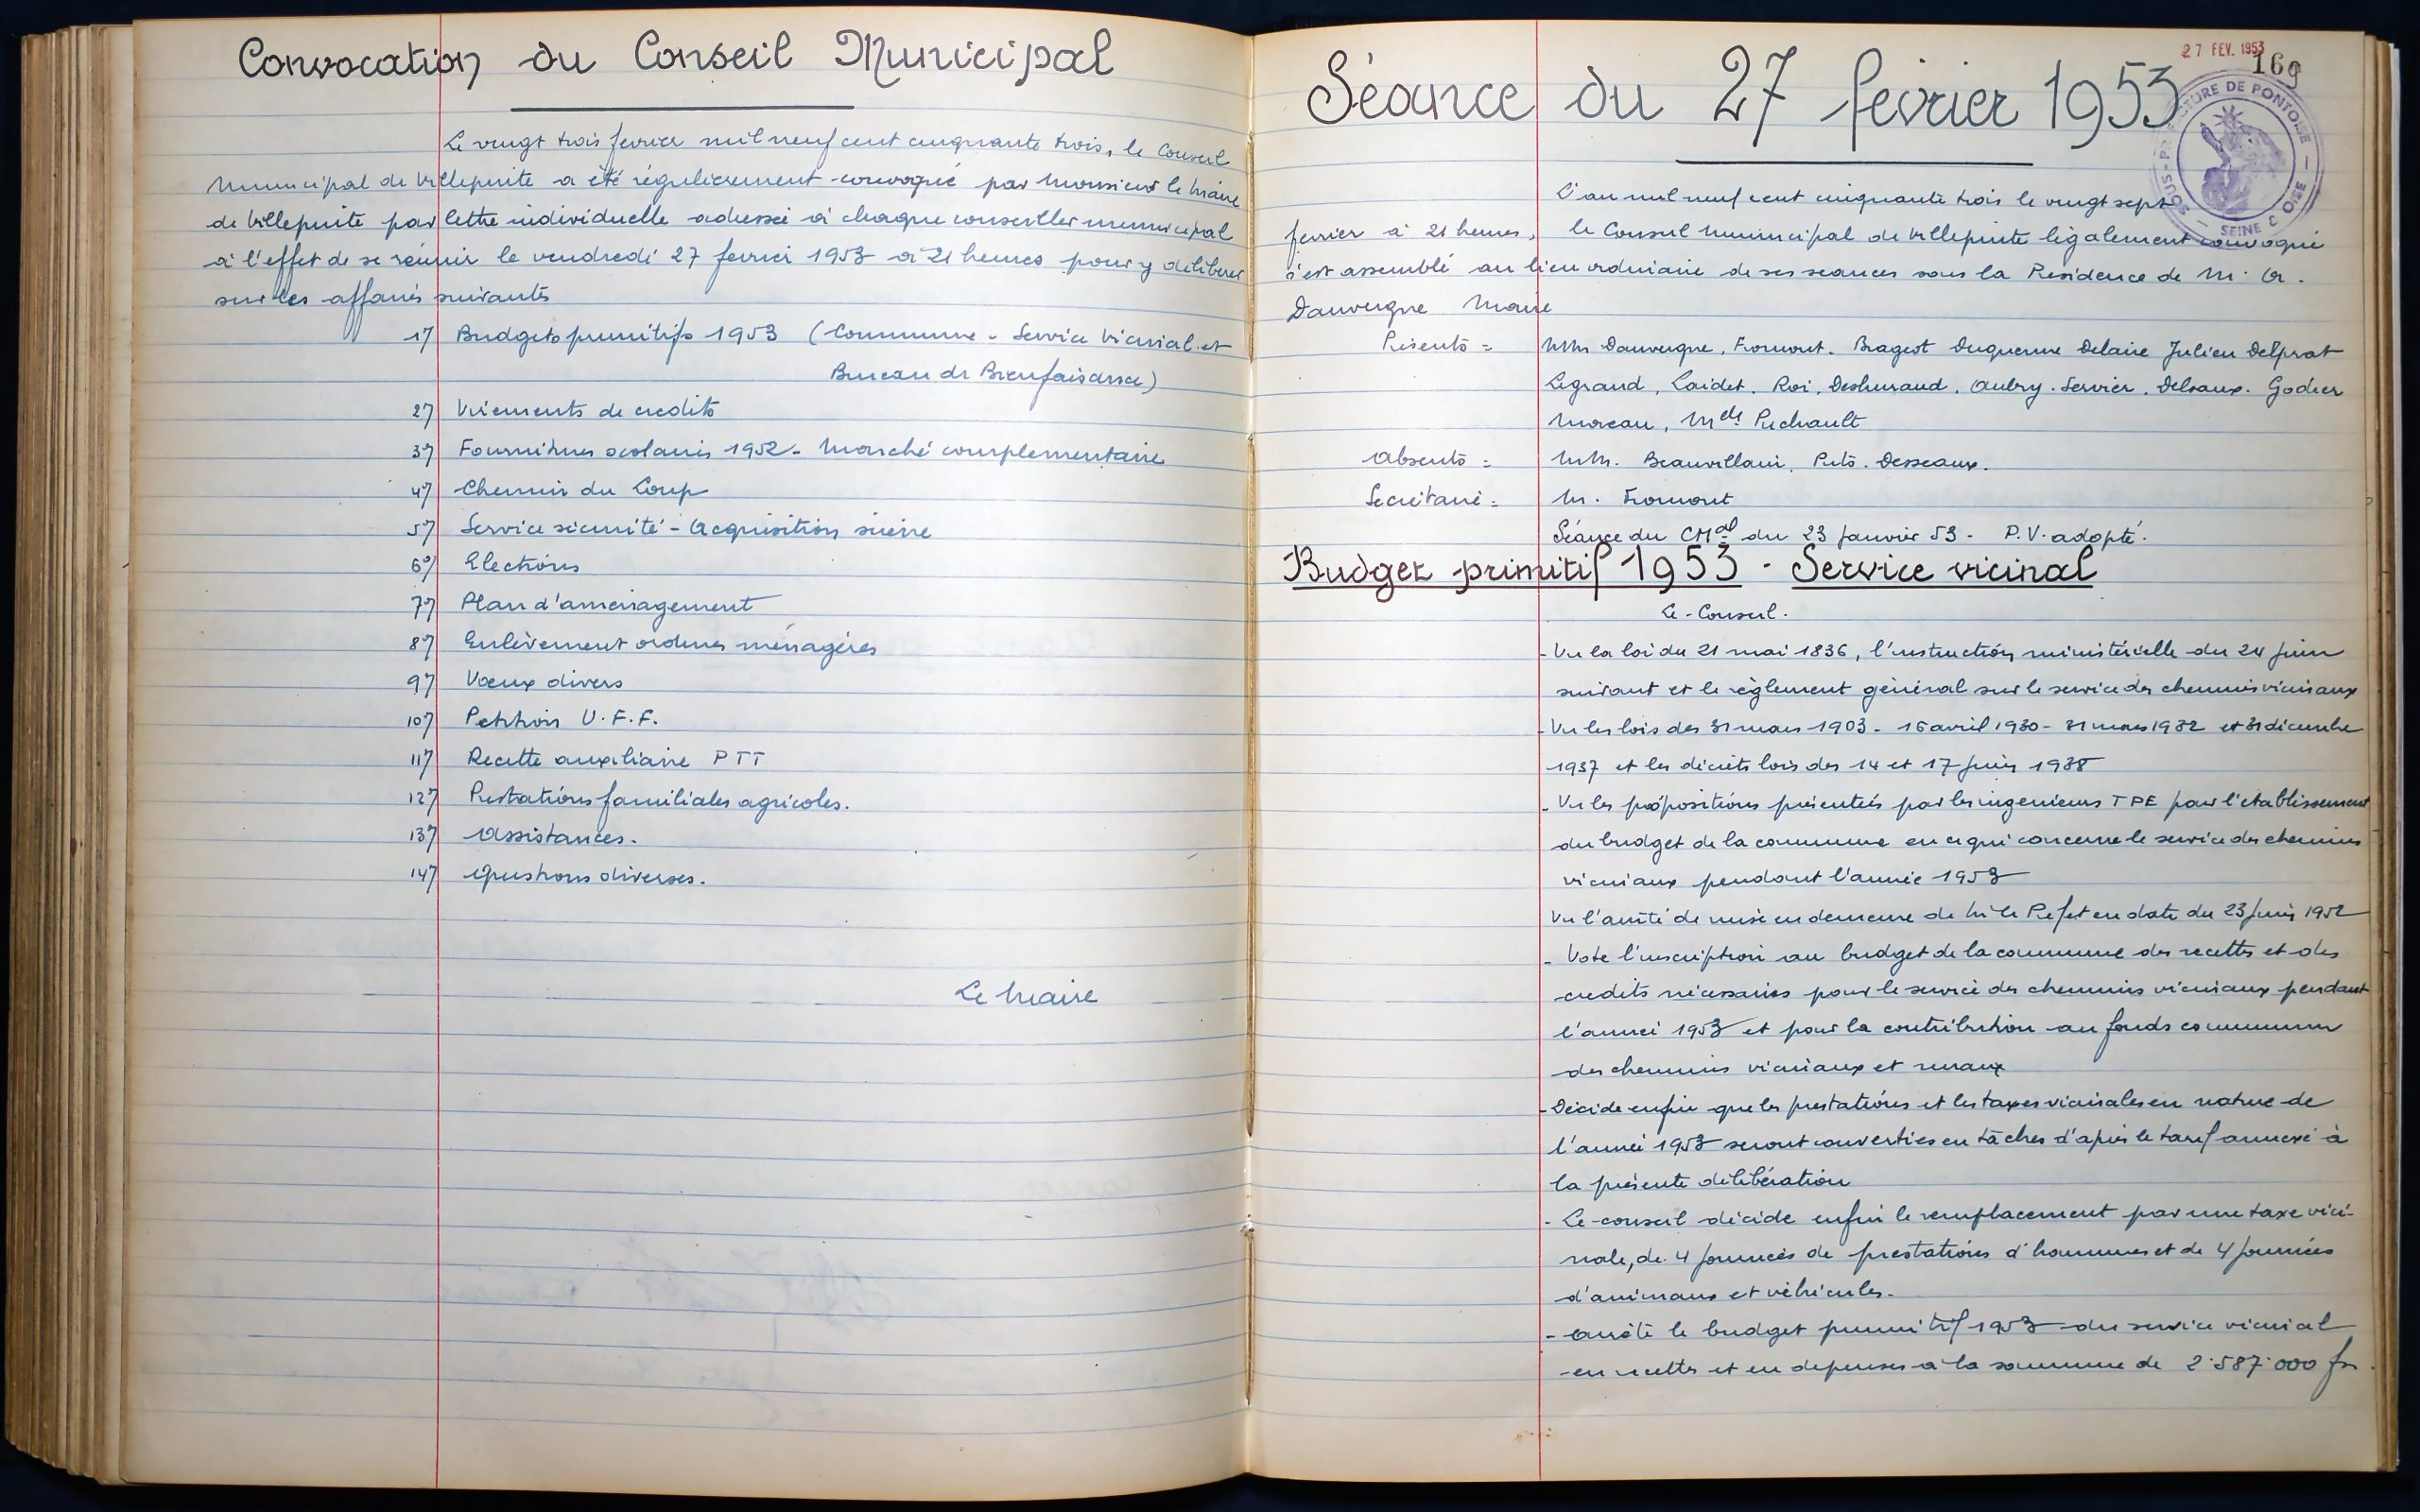 Convocation du Conseil Municipal
Le vingt trois fevrier mil neuf cent cinquante trois, le Conseil
Municipal de Villepinte a été régulièrement convoqué par Monsieur le Maire
de Villepinte par lettre individuelle adressée à chaque conseiller municipal
à l'effet de se réunir le vendredi 27 fevrier 1953 à 21 heures pour y déliberer
sur les affaires suivantes
1°/ Budgets primitifs 1953 (Commune - Service Vicinal et
Bureau de Bienfaisance)
2°/ Virements de credits
3°/ Fournitures scolaires 1952 - Marché complementaire
4°/ Chemin du Loup
5°/ Service sécurité - Acquisition sirène
6°/ Elections
7°/ Plan d'amenagement
8°/ Enlèvement ordures ménagères
9°/ Vœux divers
10°/ Petition U.F.F.
11°/ Recette auxiliaire PTT
12°/ Prestations familiales agricoles.
13°/ Assistances.
14°/ Questions diverses.
Le Maire
27 FEV. 1953
169
Séance du 27 fevrier 1953
SOUS-PRÉFECTURE DE PONTOISE
SEINE & OISE
L'an mil neuf cent cinquante trois le vingt sept
fevrier à 21 heures, le Conseil Municipal de Villepinte légalement convoqué
s'est assemblé au lieu ordinaire de ses séances sous la Présidence de M. A.
Dauvergne Maire
Présents = MM. Dauvergne, Fromont. Brageot Duquenne Delaire Julien Delprat
Legrand, Laidet, Roi, Deshuraud, Aubry. Servier, Delsaux. Godier
Moreau, Melle Puchault
Absents = MM. Beauvillain, Puts. Desseaux.
Secrétaire = M. Fromont
Séance du CMal du 23 Janvier 53 - P.V. adopté.
Budget primitif 1953 - Service vicinal
Le Conseil.
- Vu la loi du 21 mai 1836, l'instruction ministérielle du 24 Juin
suivant et le règlement général sur le service des chemins vicinaux
- Vu les lois des 31 mars 1903 - 16 avril 1930 - 31 mars 1932 et 31 décembre
1937 et les décrets lois des 14 et 17 juin 1938
- Vu les propositions présentées par les ingenieurs TPE pour l'établissement
du budget de la commune en ce qui concerne le service des chemins
vicinaux pendant l'année 1953
Vu l'arrêté de mise en demeure de M. le Préfet en date du 23 Juin 1952
- Vote l'inscription au budget de la commune des recettes et des
credits nécessaires pour le service des chemins vicinaux pendant
l'année 1953 et pour la contribution au fonds commun
des chemins vicinaux et ruraux
- Décide enfin que les prestations et les taxes vicinales en nature de
l'année 1953 seront converties en tâches d'après le tarif annexé à
la présente délibération
- Le conseil décide enfin le remplacement par une taxe vici-
nale, de 4 journées de prestations d'hommes et de 4 journées
d'animaux et véhicules.
- Arrête le budget primitif 1953 du service vicinal
en recettes et en dépenses à la somme de 2.587.000 frs.